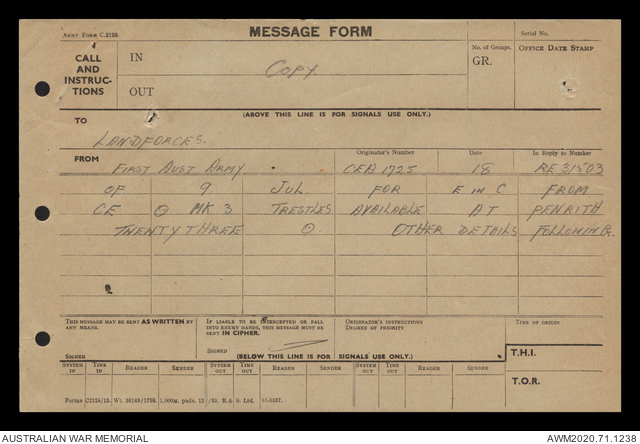 Army Form C.2128.
MESSAGE FORM
Serial No.
CALL AND INSTRUC- TIONS
IN
OUT
COPY.
No. of Groups.
GR.
OFFICE DATE STAMP
(ABOVE THIS LINE IS FOR SIGNALS USE ONLY.)
TO
LANDFORCES.
FROM
Originator's Number
Date
In Reply to Number
FIRST AUST ARMY. CEA 1725 18 RE 31503
OF 9 JUL FOR E IN C FROM
CE ⊙ MK 3 TRESTLES AVAILABLE AT PENRITH
TWENTY THREE ⊙ OTHER DETAILS FOLLOWING.
THIS MESSAGE MAY BE SENT AS WRITTEN BY ANY MEANS.
SIGNED
IF LIABLE TO BE INTERCEPTED OR FALL INTO ENEMY HANDS, THIS MESSAGE MUST BE SENT IN CIPHER.
SIGNED
ORIGINATOR'S INSTRUCTIONS
DEGREE OF PRIORITY
TIME OF ORIGIN
(BELOW THIS LINE IS FOR SIGNALS USE ONLY.)
T.H.I.
T.O.R.
SYSTEM IN
TIME IN
READER
SENDER
SYSTEM OUT
TIME OUT
READER
SENDER
SYSTEM OUT
TIME OUT
READER
SENDER
Forms C2128/13. Wt. 36169/1798. 1,000M. pads. 12/39. B.& S. Ltd. 51-5537.
AUSTRALIAN WAR MEMORIAL
AWM2020.71.1238